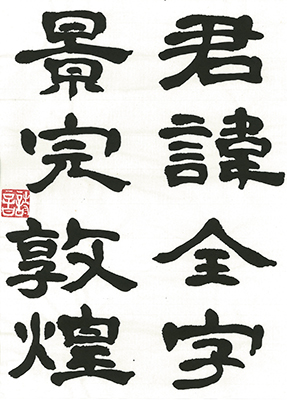 君諱全字
景完敦煌